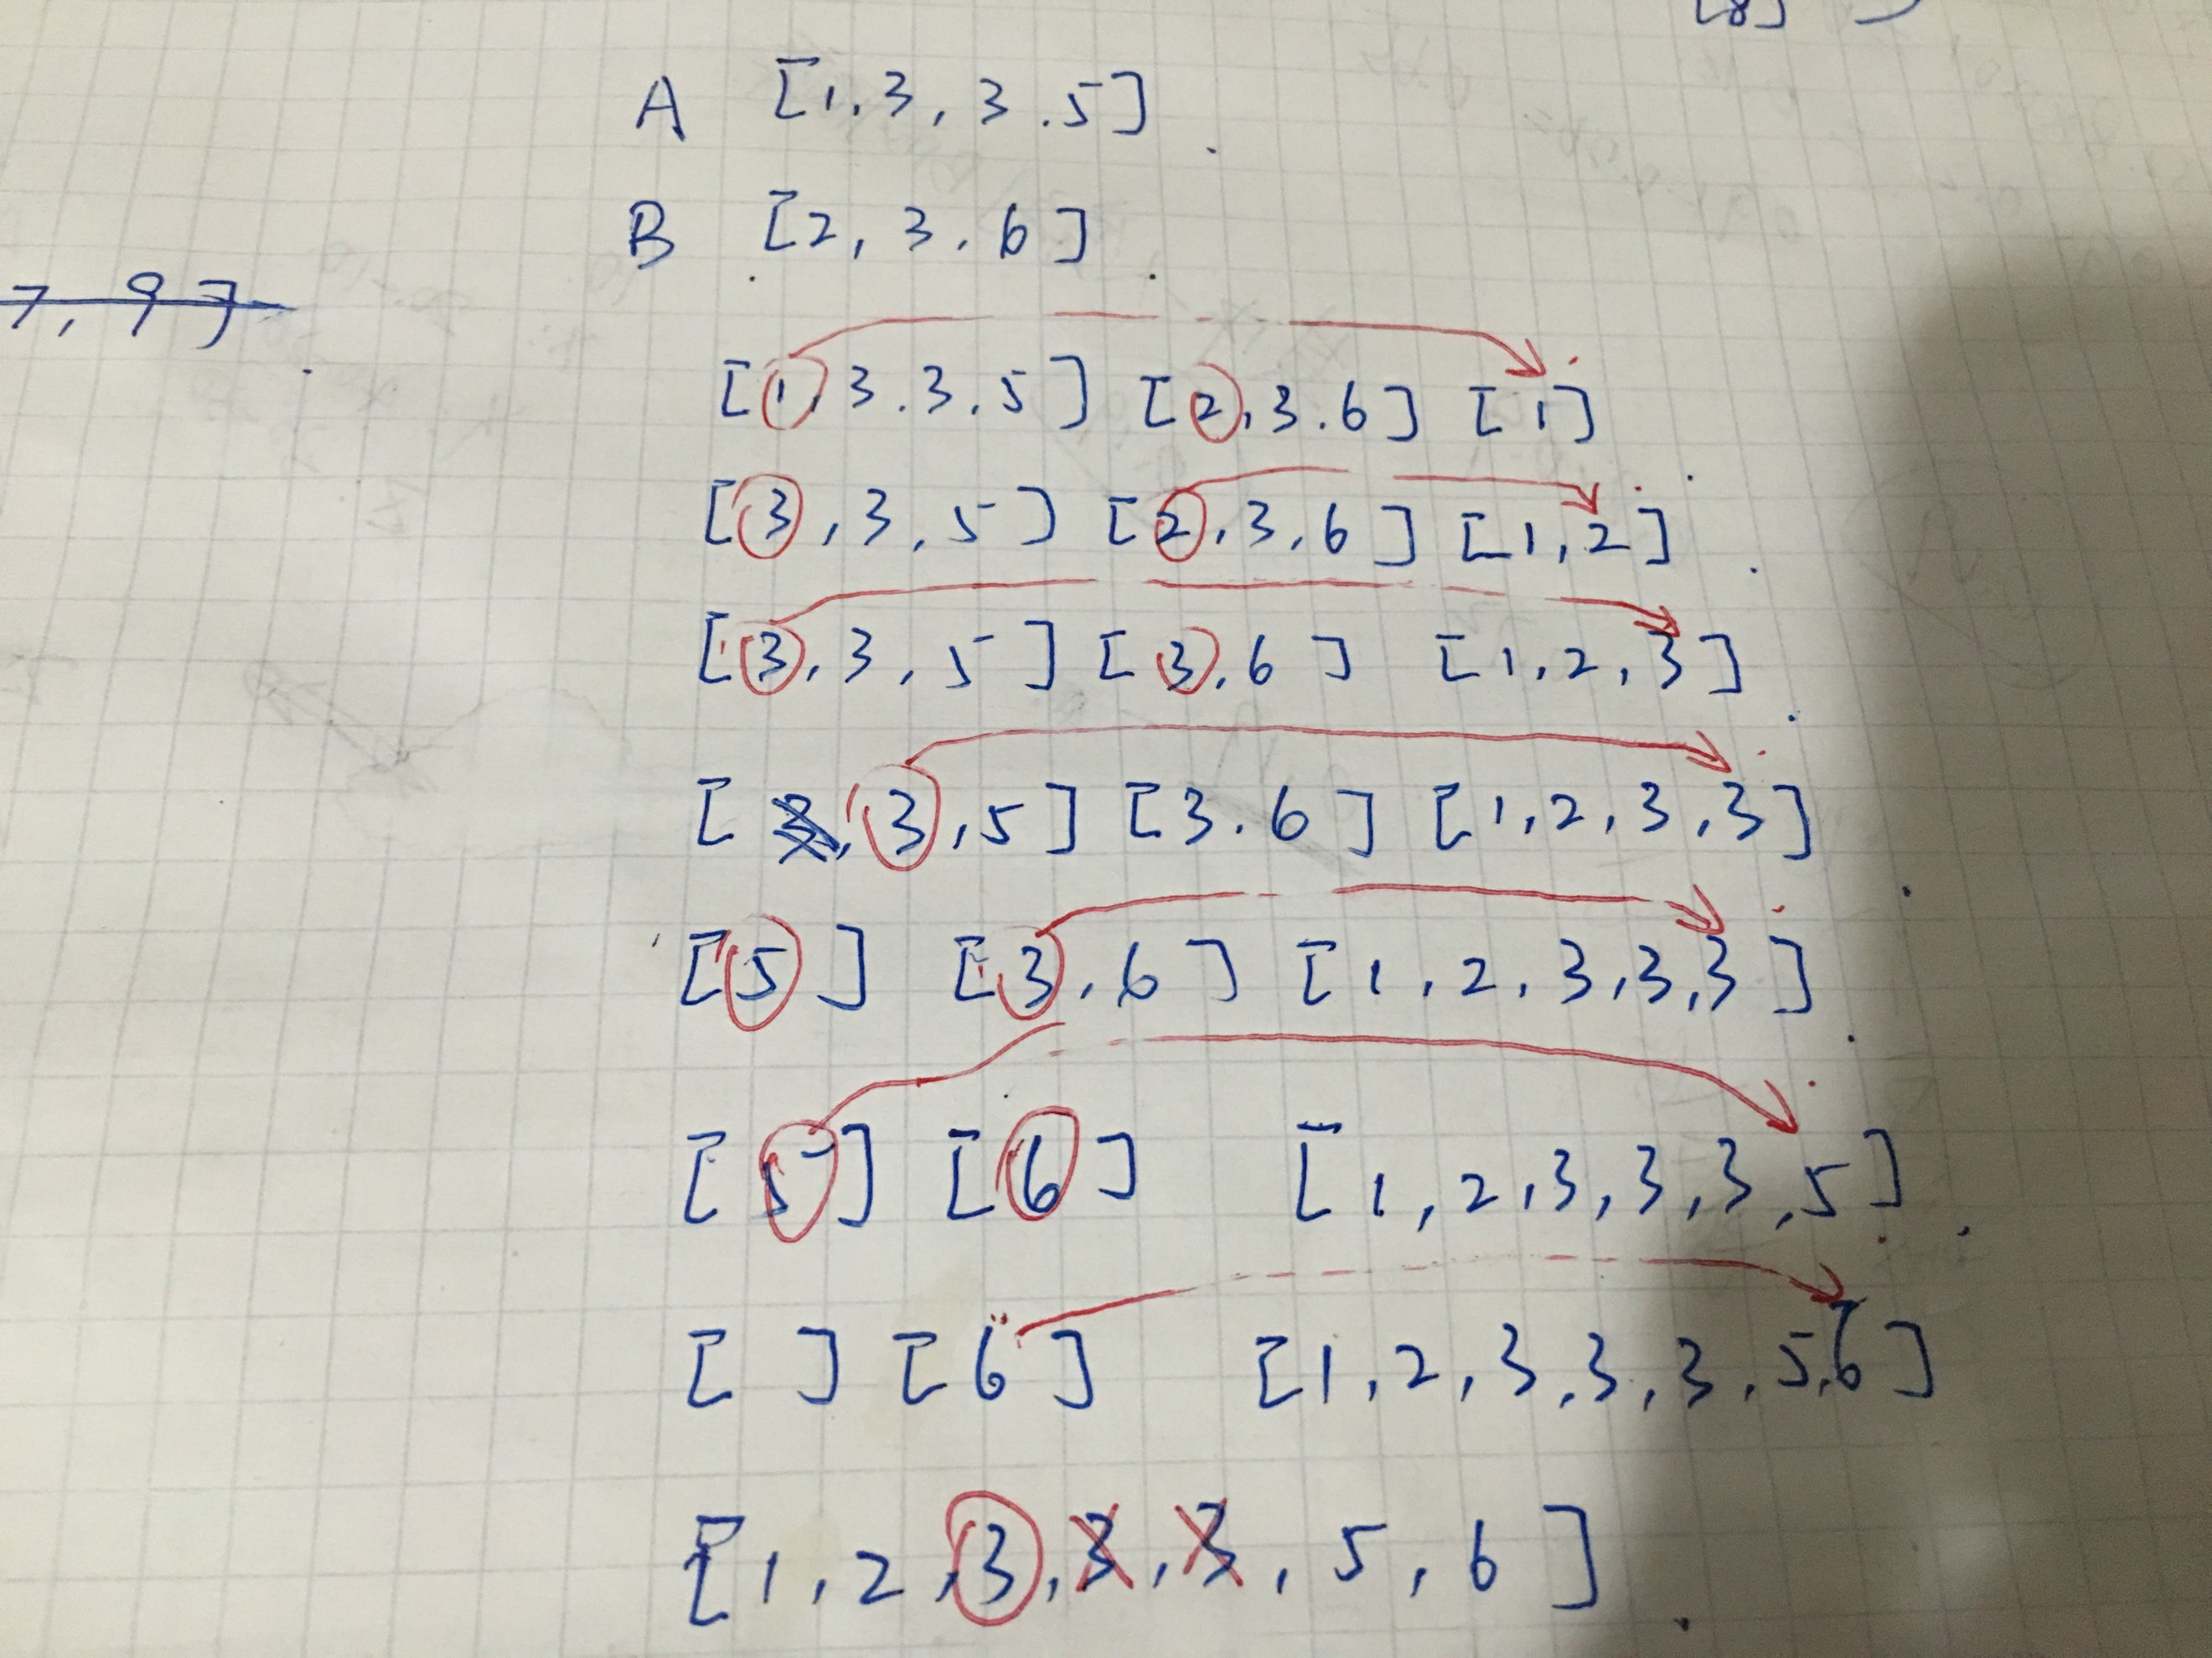 [8]
A [1,3,3.5]
B [2,3.6]
7,9]
[1,3.3.5] [2,3.6] [1]
[3,3,5] [2,3,6] [1,2]
[3,3,5] [3,6] [1,2,3]
[3,3,5] [3.6] [1,2,3,3]
[5] [3,6] [1,2,3,3,3]
[5] [6] [1,2,3,3,3,5]
[ ] [6] [1,2,3,3,3,5,6]
[1,2,3,3,3,5,6]